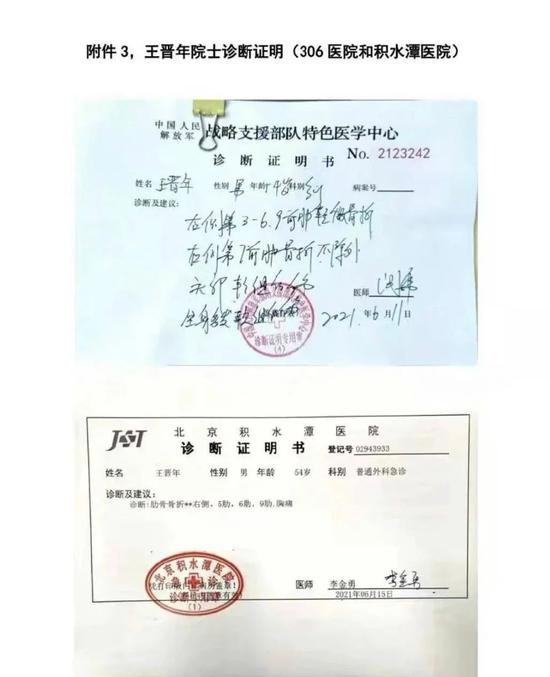 附件 3，王晋年院士诊断证明（306 医院和积水潭医院）
中国人民解放军 战略支援部队特色医学中心
诊断证明书 No. 2123242
姓名 王晋年 性别 男 年龄 科别 病案号
诊断及建议：
右侧第3-6.9前肋轻微骨折
右侧第7前肋骨折不除外
头部软组织
全身多发软组织
医师
诊断证明专用章
(4)
2021.年6月11日
JST 北京积水潭医院
诊断证明书 登记号 02943933
姓名 王晋年 性别 男 年龄 54岁 科别 普通外科急诊
诊断及建议：
诊断:肋骨骨折**右侧，5肋，6肋，9肋,胸痛
北京积水潭医院
急诊
诊断证明章
(1)
医师 李金勇 李金勇
2021年06月15日